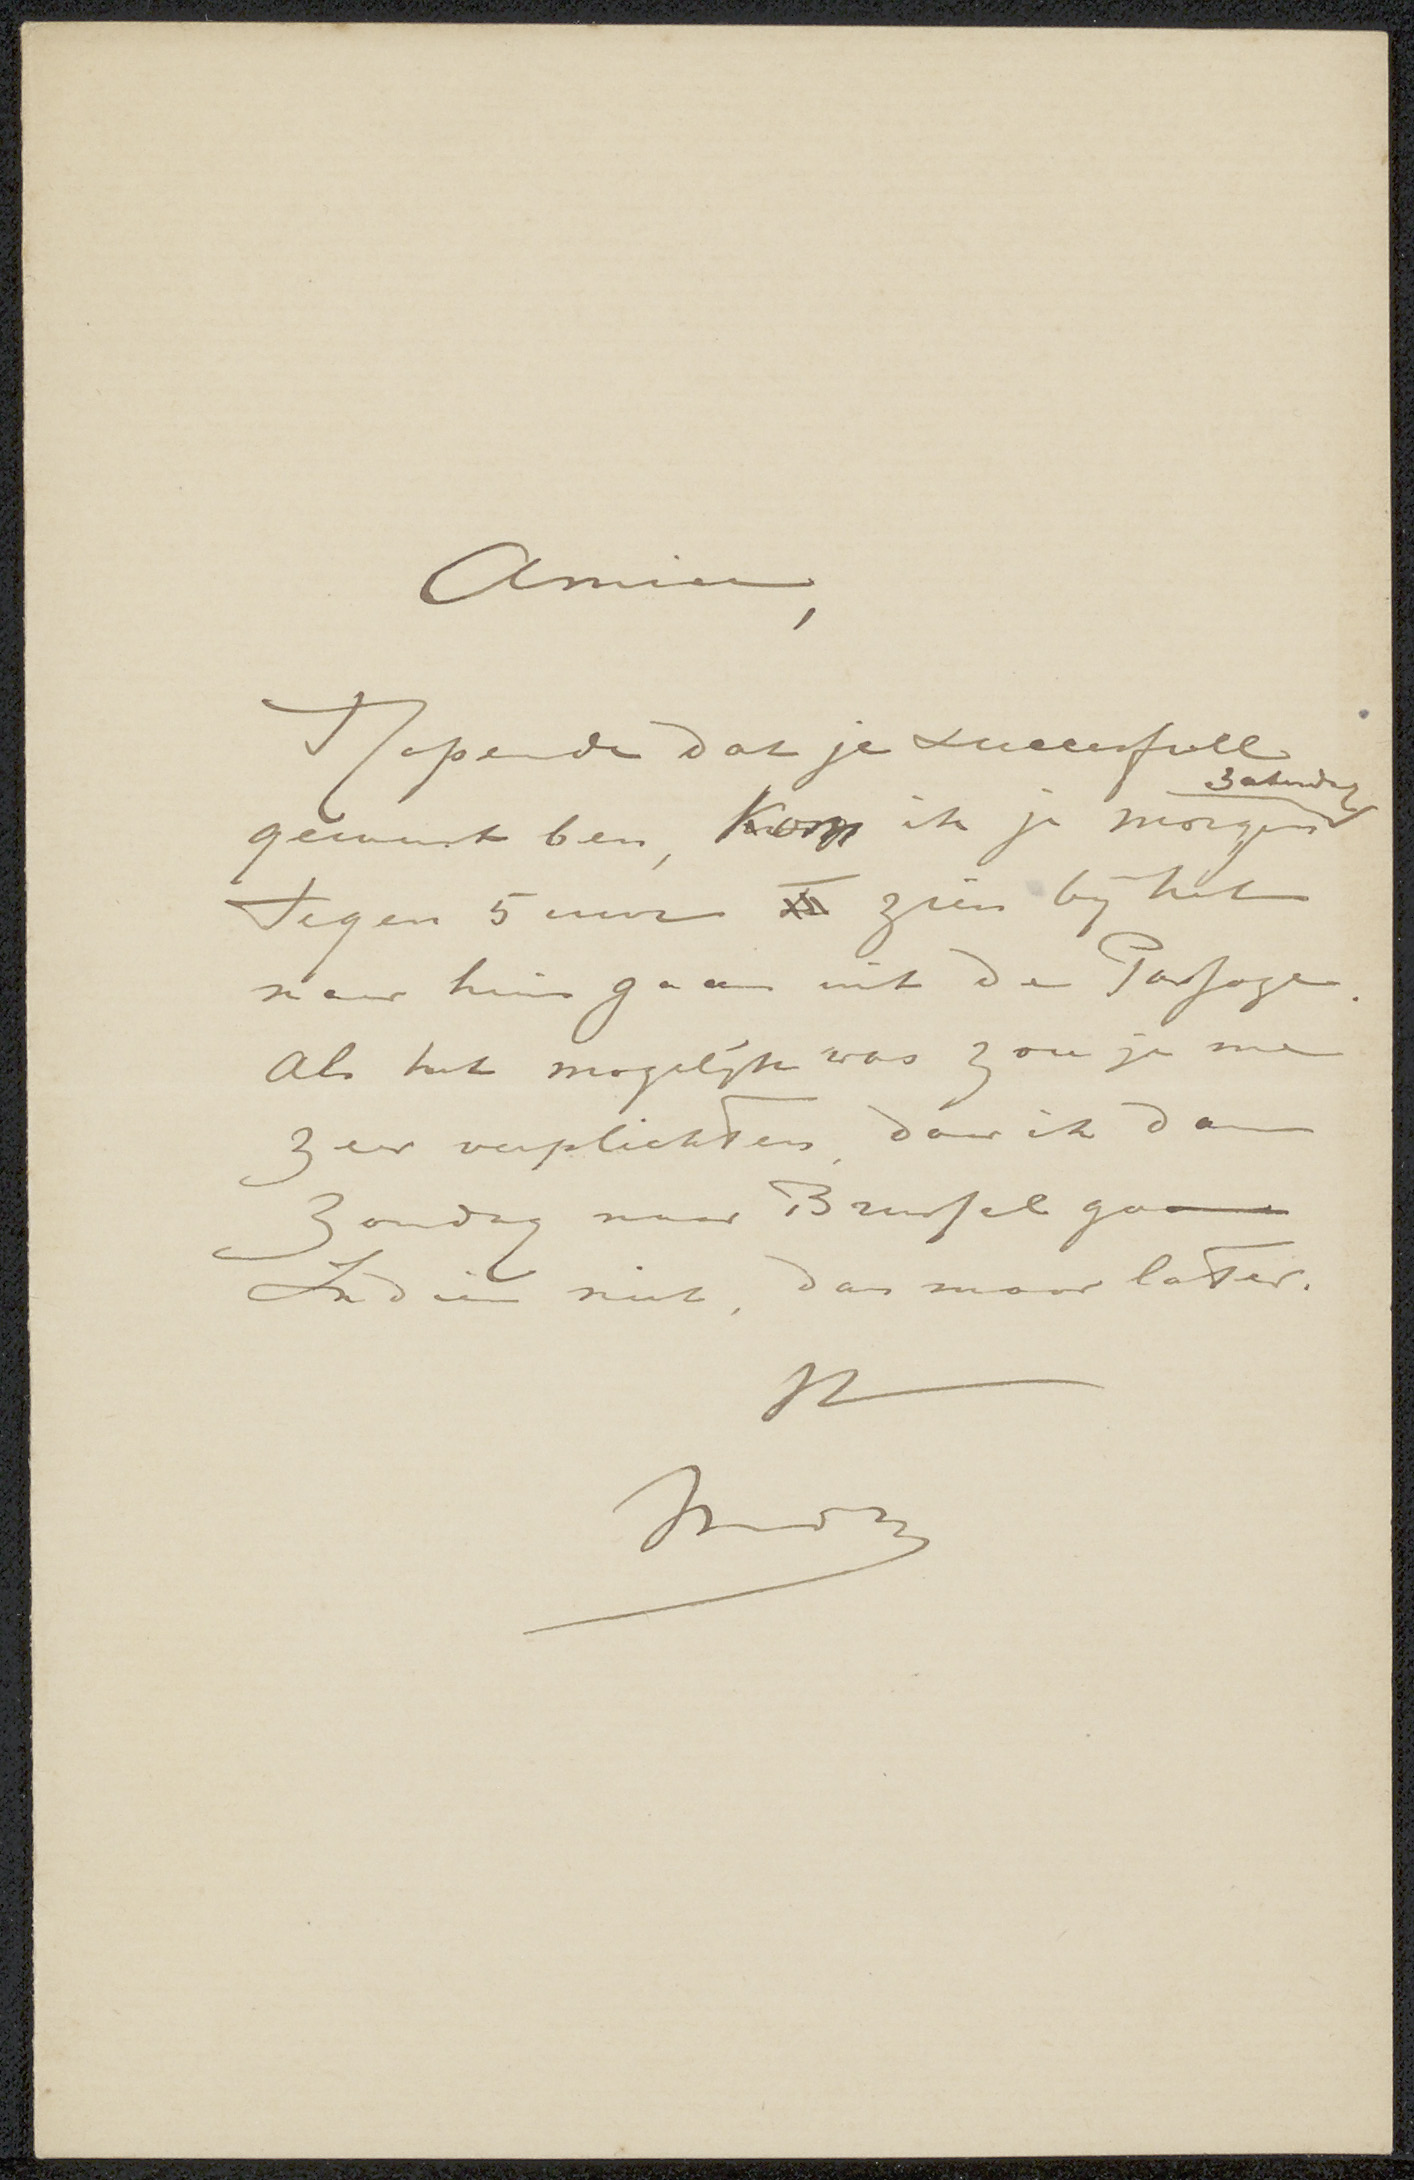 Amice,
Hopende dat je succesfull
Zaterdag
geweest ben, kom ik je morgen
tegen 5 uur zien bij het
naar huis gaan uit de Passage.
Als het mogelijk was zou je me
zeer verplichten, daar ik dan
Zondag naar Brussel ga
Indien niet, dan maar later.